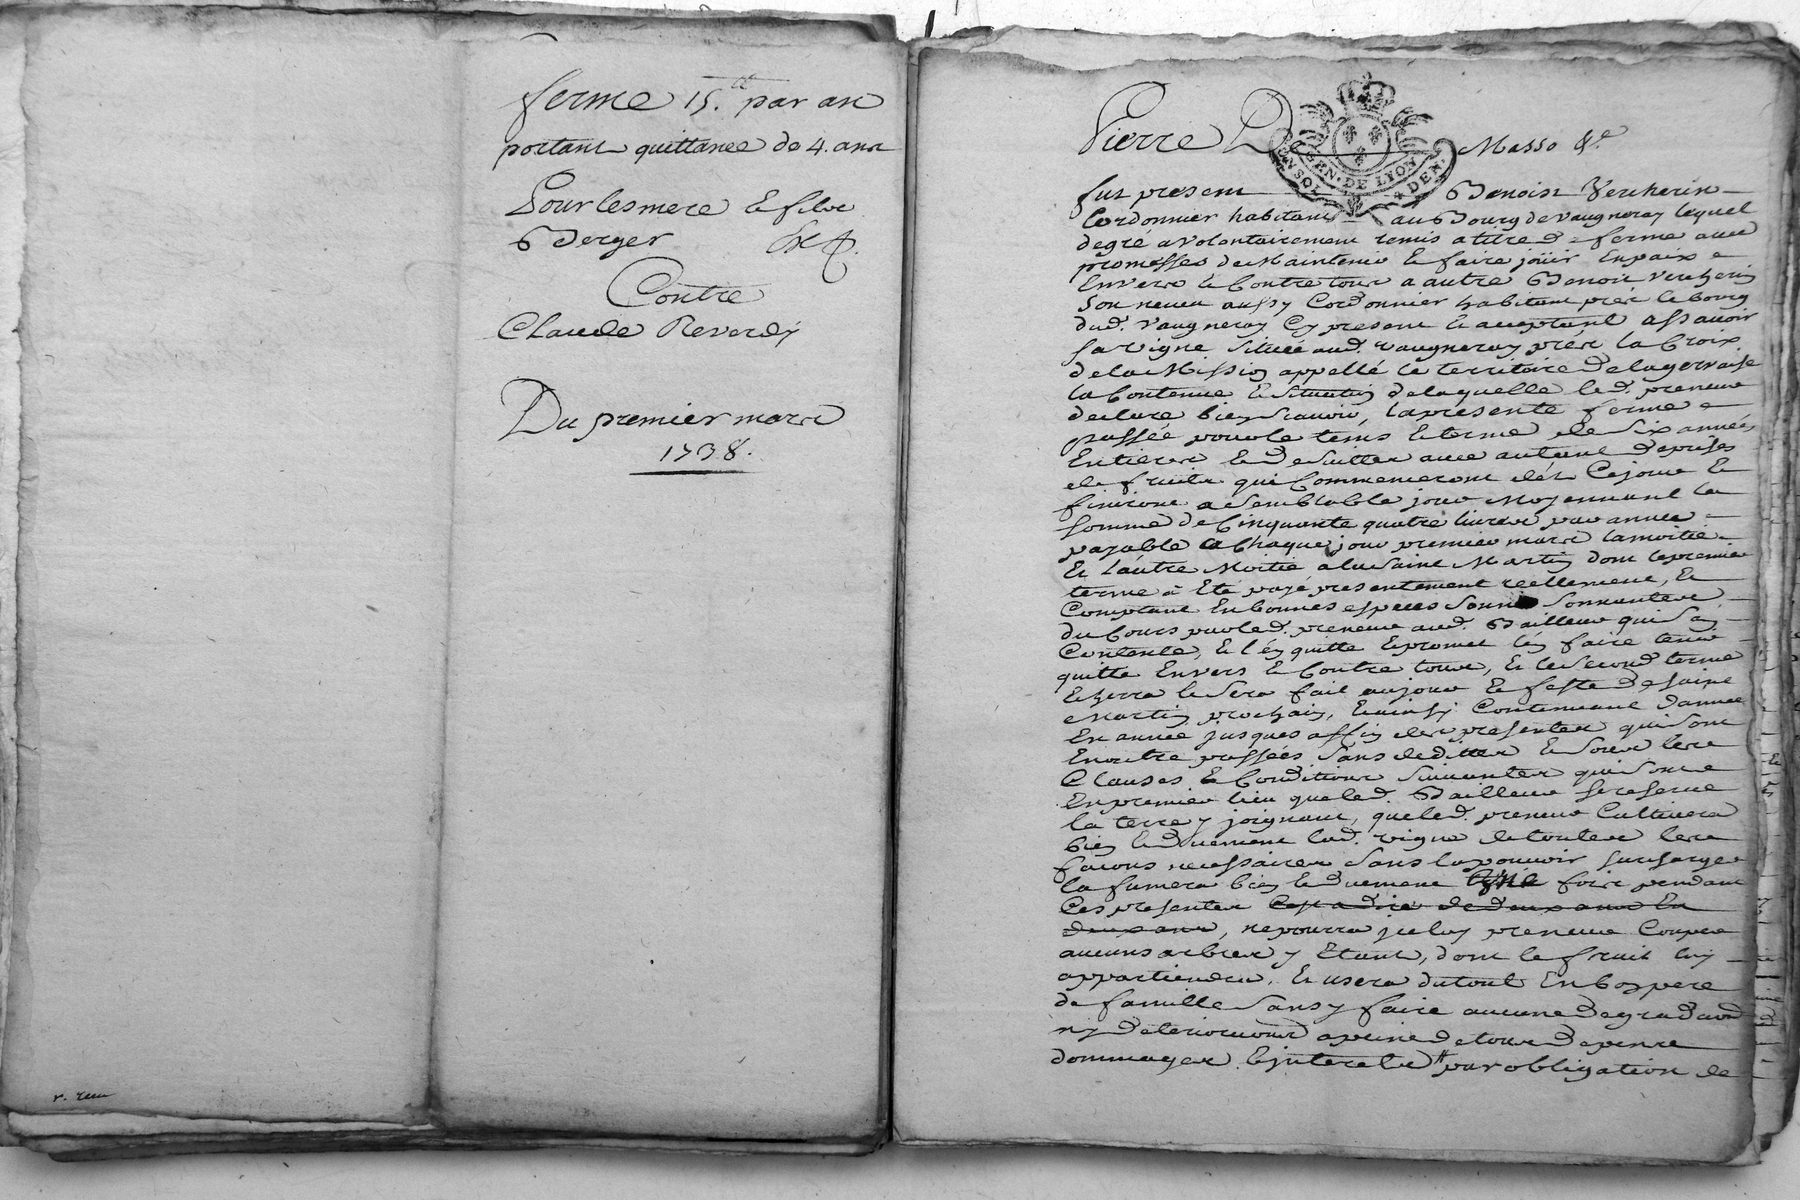 ferme 15.tt par an
portant quittance de 4. ans
Pour les mere & fils
Berger
Contre
Claude Reverdy
Du premier mars
1738.
v. reu
Pierre D Masso &c
GEN. DE LYON
fut present Benoist Vercherin
Cordonnier habitant au Bourg de vaugneray lequel
de gré a volontairement remis a titre de ferme avec
promesses de Maintenir & faire joüir En paix
Envers & Contre tous a autre Benoist Vercherin
Son neveu aussy Cordonnier habitant prés le bourg
dud. vaugneray Cy present & acceptant assavoir
sa vigne Située aud. vaugneray prés la Croix
de la Mission appellé le territoire de la gervaise
la Contenue & Situation de laquelle led. preneur
declare bien scavoir, la presente ferme
passée pour le tems & terme de Six années
Entieres & de Suitte avec autant de prises
de fruits qui Commenceront dés Ce jour &
finiront a Semblable jour Moyennant la
somme de Cinquante quatre livres par année
payable a Chaque jour premier mars la moitié
Et l'autre Moitié a la Saint Martin dont le premier
terme à Eté payé presentement reellement, Et
Comptant En bonnes especes Sonnantes
du Cours par led. preneur aud. Bailleur qui S'en
Contente, & l'en quitte & promet l'en faire tenir
quitte Envers & Contre tous, Et le Second terme
Echerra & Sera fait au jour & feste de Saint
Martin prochain, Et ainsy Continuant d'année
En année jusques a fin des presentes qui Sont
En outre passées Sans deditte & Sous les
Clauses & Conditions Suivantes qui Sont
En premier lieu que led. Bailleur se reserve
la terre y joignant, que led. preneur Cultivera
bien & duement lad. vigne de toutes les
façons necessaires Sans la pouvoir surcharger
la fumera bien & duement fois pendant
Ces presentes C'est a dire de deux ans En
deux ans, ne pourra jceluy preneur Couper
aucuns arbres y Etant, dont le fruit luy
appartiendra, Et usera du tout En bon pere
de famille Sans y faire aucune degradation
ny deterioration a peine de tous depens
dommages & jnterets par obligation de